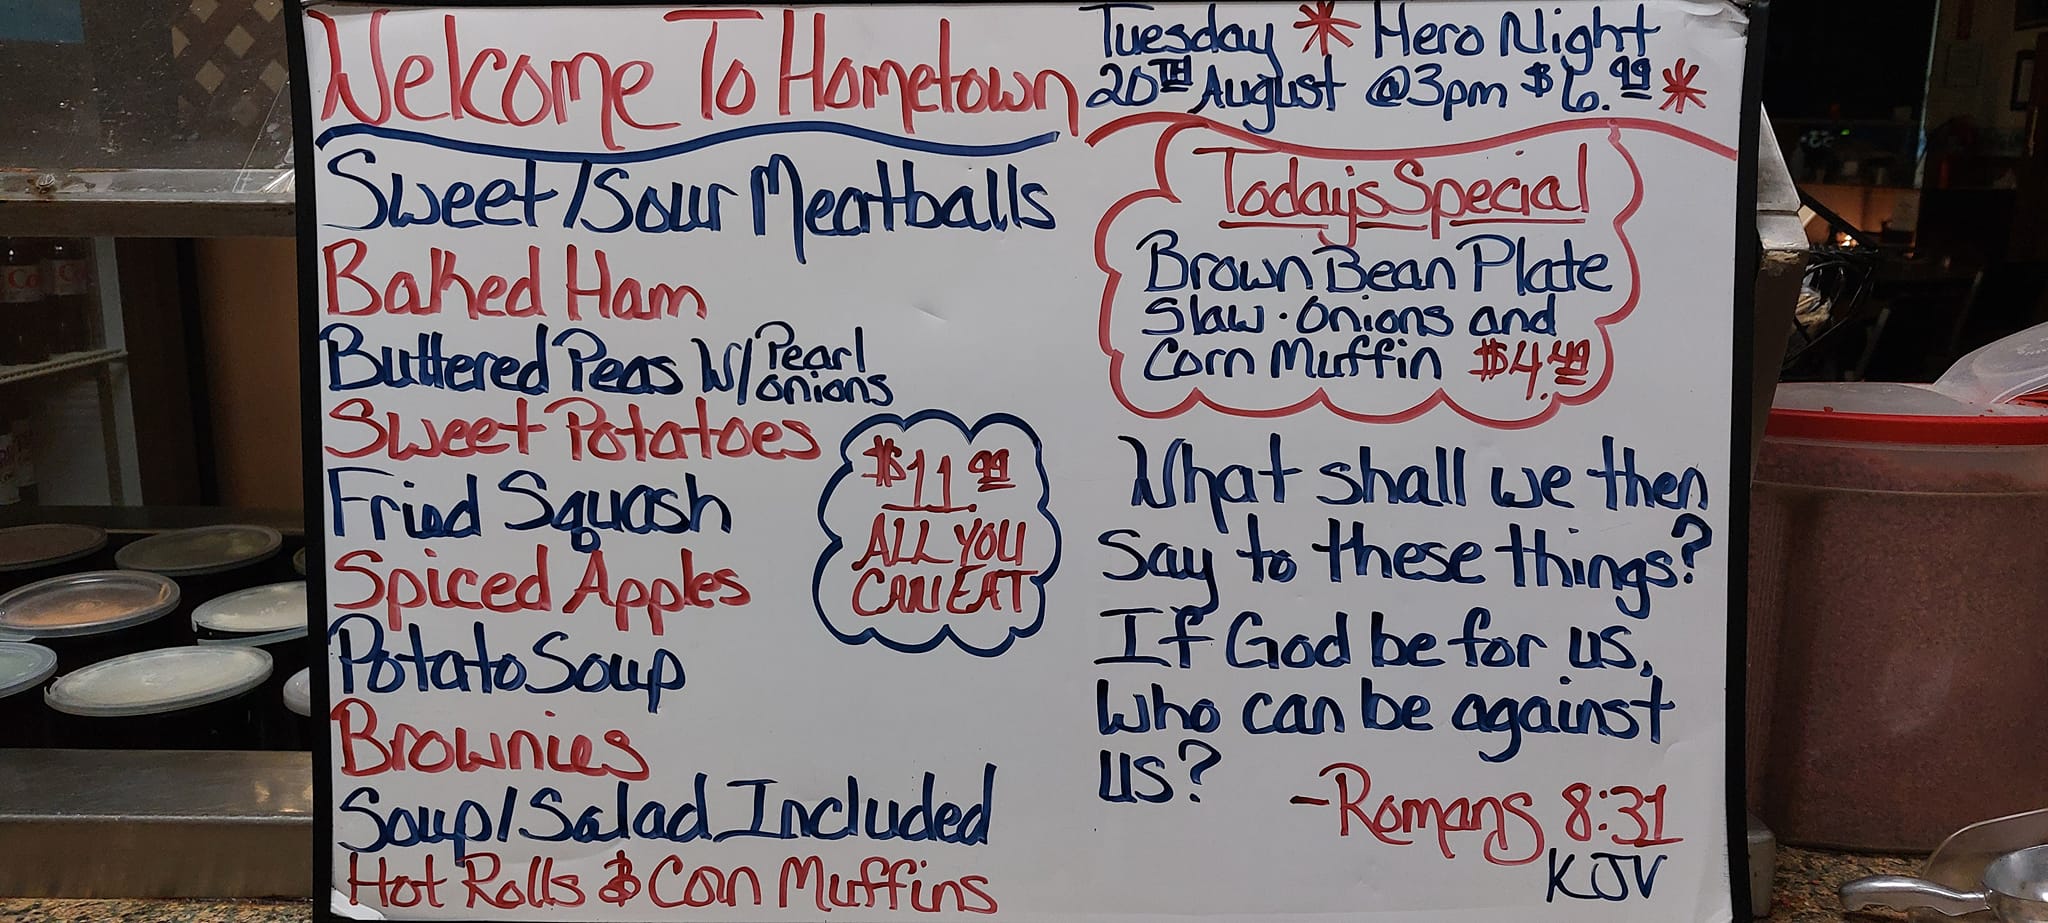 Welcome To Hometown
Sweet/Sour Meatballs
Baked Ham
Buttered Peas W/ Pearl
onions
Sweet Potatoes
Fried Squash
Spiced Apples
Potato Soup
Brownies
Soup/Salad Included
Hot Rolls & Corn Muffins
$11.99
ALL YOU
CAN EAT
Tuesday * Hero Night
20TH August @3pm $6.99 *
Today's Special
Brown Bean Plate
Slaw · Onions and
Corn Muffin $4.49
What shall we then
Say to these things?
If God be for us,
Who can be against
us?
-Romans 8:31
KJV